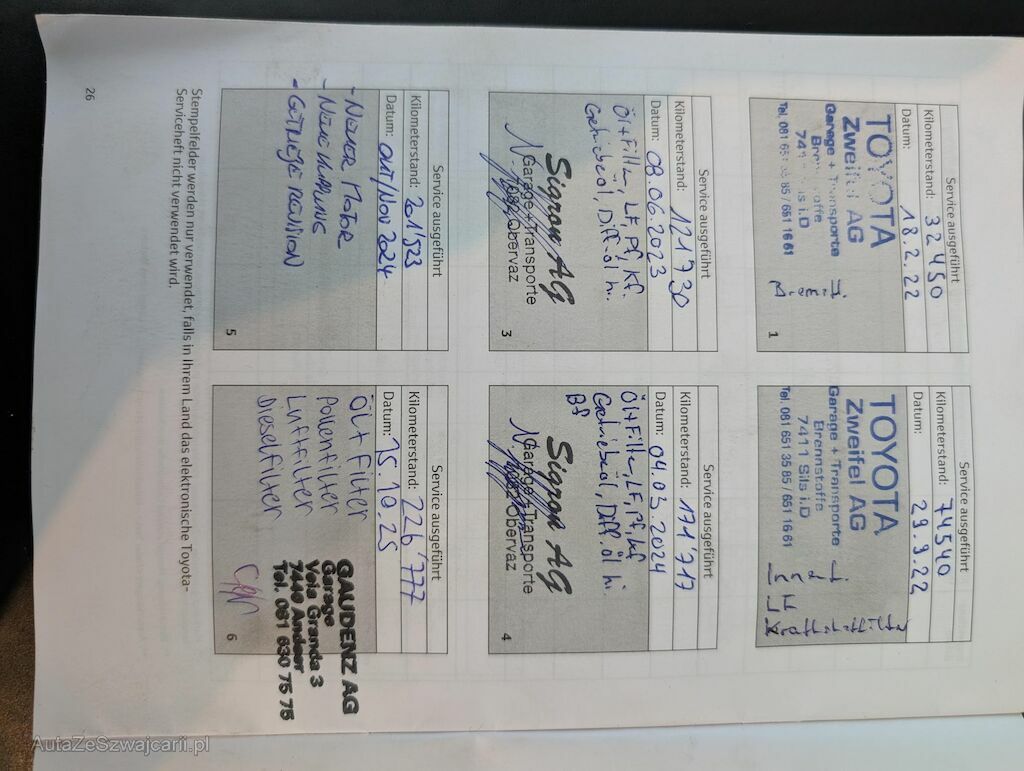 Service ausgeführt
Kilometerstand: 32450
Datum: 18.2.22
TOYOTA
Zweifel AG
Garage + Transporte
Brennstoffe
7411 Sils i.D
Tel. 081 651 35 85 / 651 16 61
1
Service ausgeführt
Kilometerstand: 74540
Datum: 29.9.22
TOYOTA
Zweifel AG
Garage + Transporte
Brennstoffe
7411 Sils i.D
Tel. 081 651 35 85 / 651 16 61
Service ausgeführt
Kilometerstand: 121'730
Datum: 08.06.2023
Öl+Filter, LF, Pf, Kf.
Getriebeöl, Diff.öl hi.
Sigron AG
Garage+Transporte
Obervaz
3
Service ausgeführt
Kilometerstand: 171'717
Datum: 04.03.2024
Öl+Filter, LF, Pf, Kf
Getriebeöl, Diff.öl hi.
Bf
Sigron AG
Garage+Transporte
Obervaz
4
Service ausgeführt
Kilometerstand: 201523
Datum: OUT/NOV 2024
- NEUER MOTOR
- NEUE KUPPLUNG
- GETRIEBE REVISION
5
Service ausgeführt
Kilometerstand: 226'777
Datum: 15.10.25
Öl + Filter
Pollenfilter
Luftfilter
Dieselfilter
GAUDENZ AG
Garage
Veia Granda 3
7440 Andeer
Tel. 081 630 75 75
6
Stempelfelder werden nur verwendet, falls in Ihrem Land das elektronische Toyota-
Serviceheft nicht verwendet wird.
26
AutaZeSzwajcarii.pl